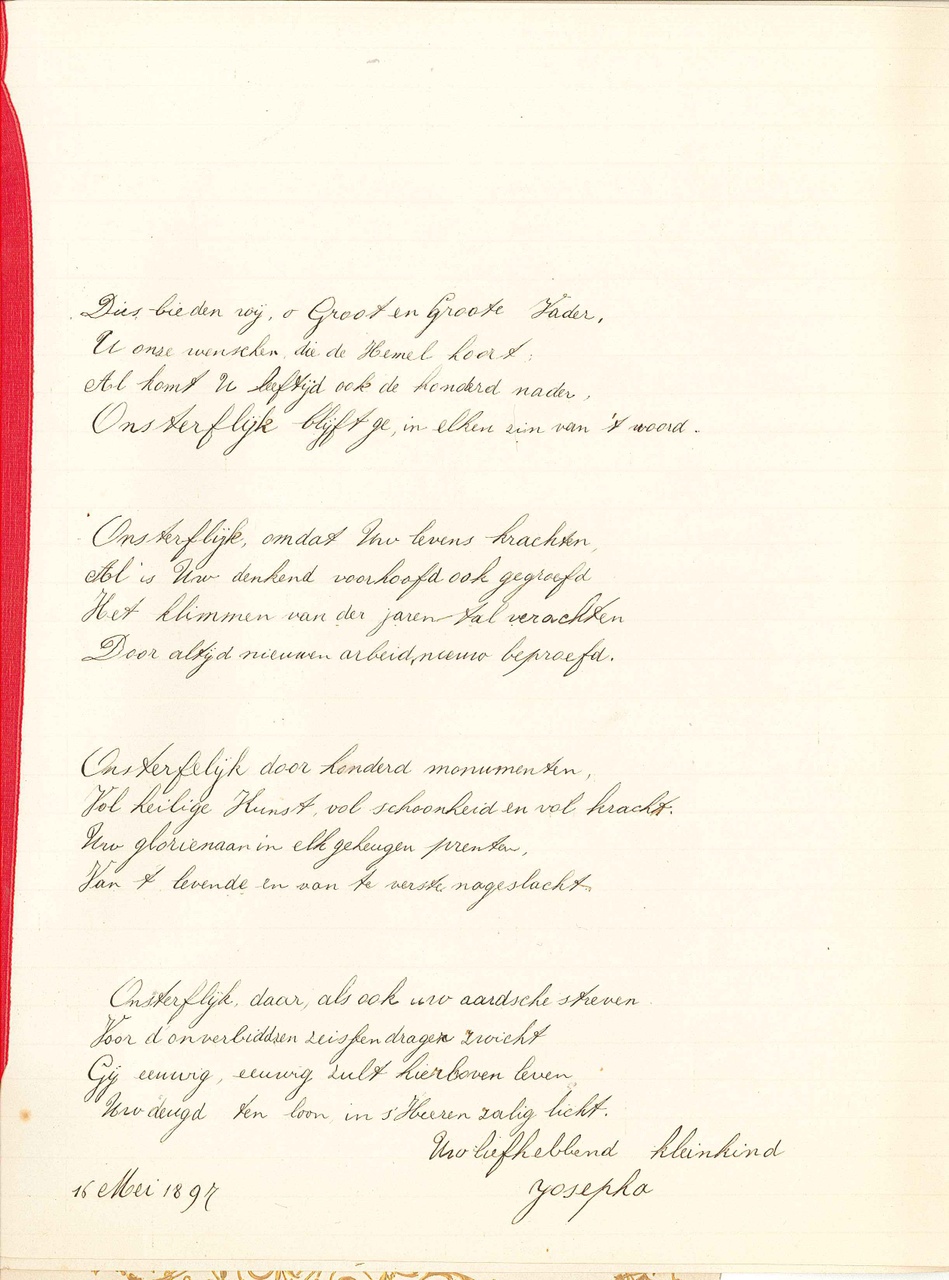 Dies bieden wij, o Groot en Groote Vader,
U onze wenschen, die de Hemel hoort;
Al komt U leeftijd ook de honderd nader,
Onsterflijk blijft ge, in elken zin van 't woord.
Onsterflijk, omdat Uw levens krachten,
Al is Uw denkend voorhoofd ook gegroefd
Het klimmen van der jaren tal verachten
Door altijd nieuwen arbeid, nieuw beproefd.
Onsterfelijk door honderd monumenten,
Vol heilige Kunst, vol schoonheid en vol kracht.
Uw glorienaam in elk geheugen prenten,
Van t levende en van te verste nageslacht.
Onsterflijk, daar, als ook uw aardsche streven
Voor d'onverbidd'en zeissendrager zwicht
Gij eeuwig, eeuwig zult hierboven leven
Uw deugd ten loon, in s'Heeren zalig licht.
Uw liefhebbend kleinkind
16 Mei 1897 Josepha